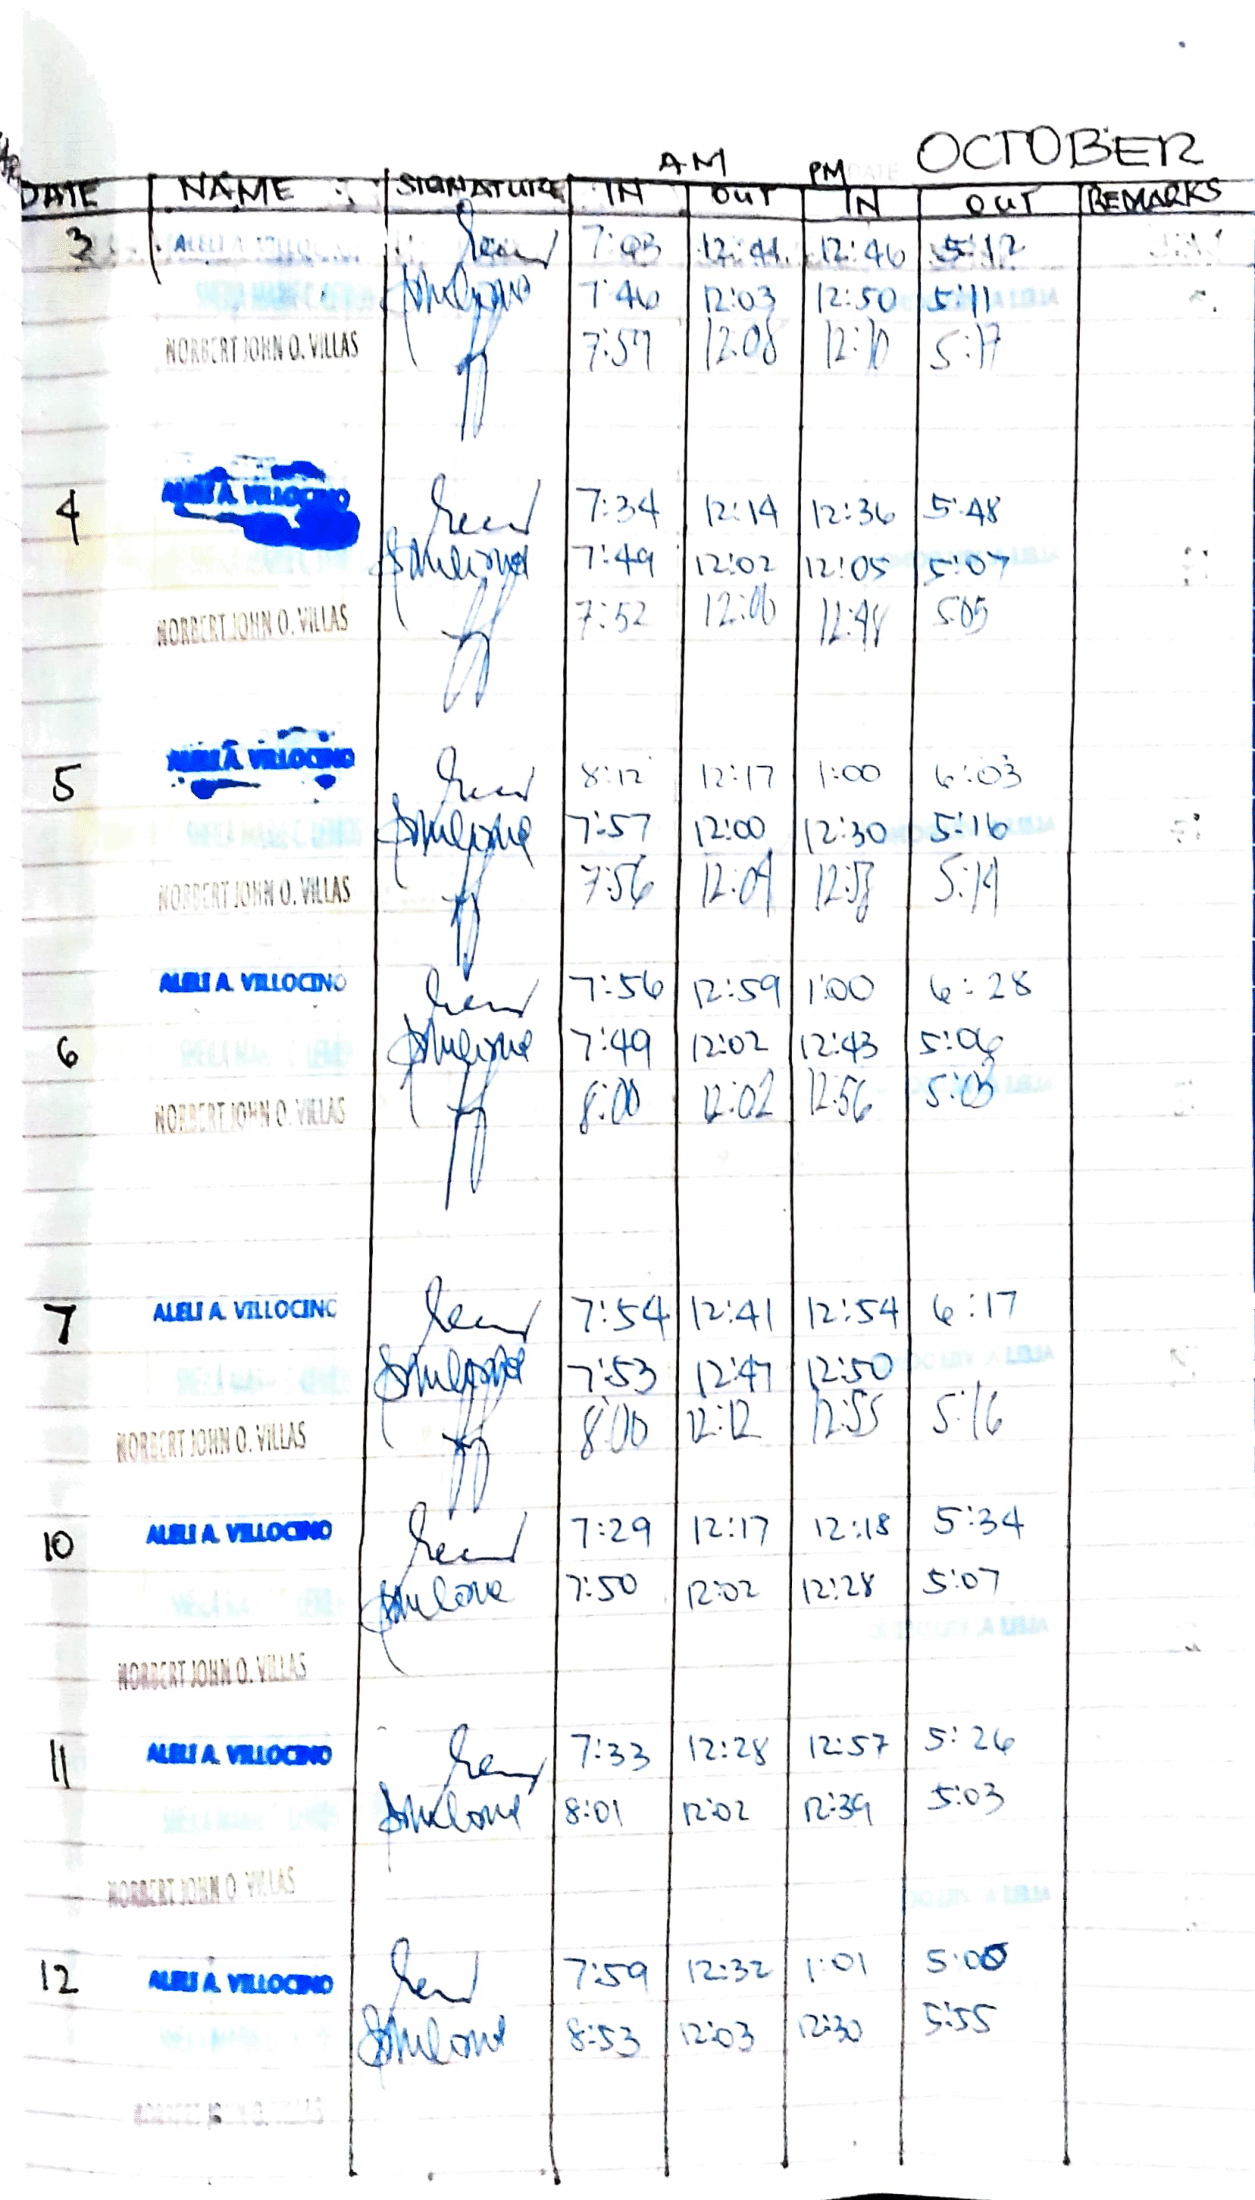 OCTOBER
AM PM
DATE NAME SIGNATURE IN OUT IN OUT REMARKS
3 ALELI A. VILLOCINO 7:43 12:44 12:46 5:12
7:46 12:03 12:50 5:11
NORBERT JOHN O. VILLAS 7:59 12:08 12:10 5:17
4 ALELI A. VILLOCINO 7:34 12:14 12:36 5:48
7:49 12:02 12:05 5:07
NORBERT JOHN O. VILLAS 7:52 12:06 12:48 5:05
5 ALELI A. VILLOCINO 8:12 12:17 1:00 6:03
7:57 12:00 12:30 5:16
NORBERT JOHN O. VILLAS 7:56 12:09 12:58 5:19
ALELI A. VILLOCINO 7:56 12:59 1:00 6:28
6 7:49 12:02 12:43 5:06
NORBERT JOHN O. VILLAS 8:00 12:02 12:56 5:03
7 ALELI A. VILLOCINO 7:54 12:41 12:54 6:17
7:53 12:47 12:50
NORBERT JOHN O. VILLAS 8:00 12:12 12:55 5:16
10 ALELI A. VILLOCINO 7:29 12:17 12:18 5:34
7:50 12:02 12:28 5:07
NORBERT JOHN O. VILLAS
11 ALELI A. VILLOCINO 7:33 12:28 12:57 5:26
8:01 12:02 12:39 5:03
NORBERT JOHN O. VILLAS
12 ALELI A. VILLOCINO 7:59 12:32 1:01 5:00
8:53 12:03 12:30 5:55
NORBERT JOHN O. VILLAS